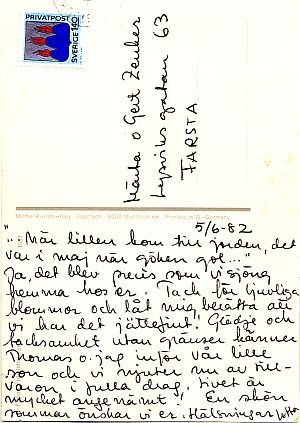 PRIVATPOST
SVERIGE 140
Märta o Gert Zenker
Lepsviksgatan 63
FARSTA
Michel Kunstverlag · Postfach · 8000 München 66 · Printed in W. Germany
5/6-82
"... När lillen kom till jorden, det
var i maj när göken gol..."
Ja, det blev precis som vi sjöng
hemma hos er. Tack för ljuvliga
blommor och låt mig berätta att
vi har det jättefint! Glädje och
tacksamhet utan gränser känner
Thomas o. jag inför vår lille
son och vi njuter nu av till-
varon i fulla drag. Livet är
mycket angenämt! En skön
sommar önskar vi er. Hälsningar